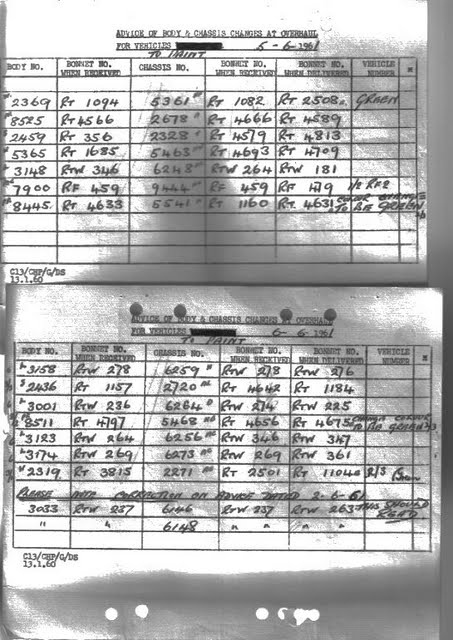 ADVICE OF BODY & CHASSIS CHANGES AT OVERHAUL
FOR VEHICLES 5-6-1961
TO PAINT
BODY NO. BONNET NO. WHEN RECEIVED CHASSIS NO. BONNET NO. WHEN RECEIVED BONNET NO. WHEN DELIVERED VEHICLE NUMBER
2369 RT 1094 5361 RT 1082 RT 2508 GREEN
8525 RT 4566 2678 RT 4666 RT 4589
2459 RT 356 2328 RT 4579 RT 4813
5365 RT 1685 5463 RT 4693 RT 4709
3148 RTW 346 6248 RTW 264 RTW 181
7900 RF 459 9444 RF 459 RF 419 1/2 RF2
8445 RT 4633 5541 RT 1160 RT 4631 TO BE GREEN
C13/CHP/G/DS
13.1.60
ADVICE OF BODY & CHASSIS CHANGES AT OVERHAUL
FOR VEHICLES 6-6-1961
TO PAINT
BODY NO. BONNET NO. WHEN RECEIVED CHASSIS NO. BONNET NO. WHEN RECEIVED BONNET NO. WHEN DELIVERED VEHICLE NUMBER
3158 RTW 278 6259 RTW 278 RTW 276
2436 RT 1157 2720 RT 4642 RT 1184
3001 RTW 236 6264 RTW 274 RTW 225
8511 RT 4797 5468 RT 4656 RT 4675 CHANGE COLOUR TO BE GREEN
3123 RTW 264 6256 RTW 346 RTW 347
3174 RTW 269 6273 RTW 269 RTW 361
2319 RT 3815 2271 RT 2501 RT 1104 2/3
PLEASE NOTE CORRECTION ON ADVICE DATED 2-6-61
3033 RTW 237 6146 RTW 237 RTW 263 THIS SHOULD READ
" " 6148 " " "
C13/CHP/G/DS
13.1.60